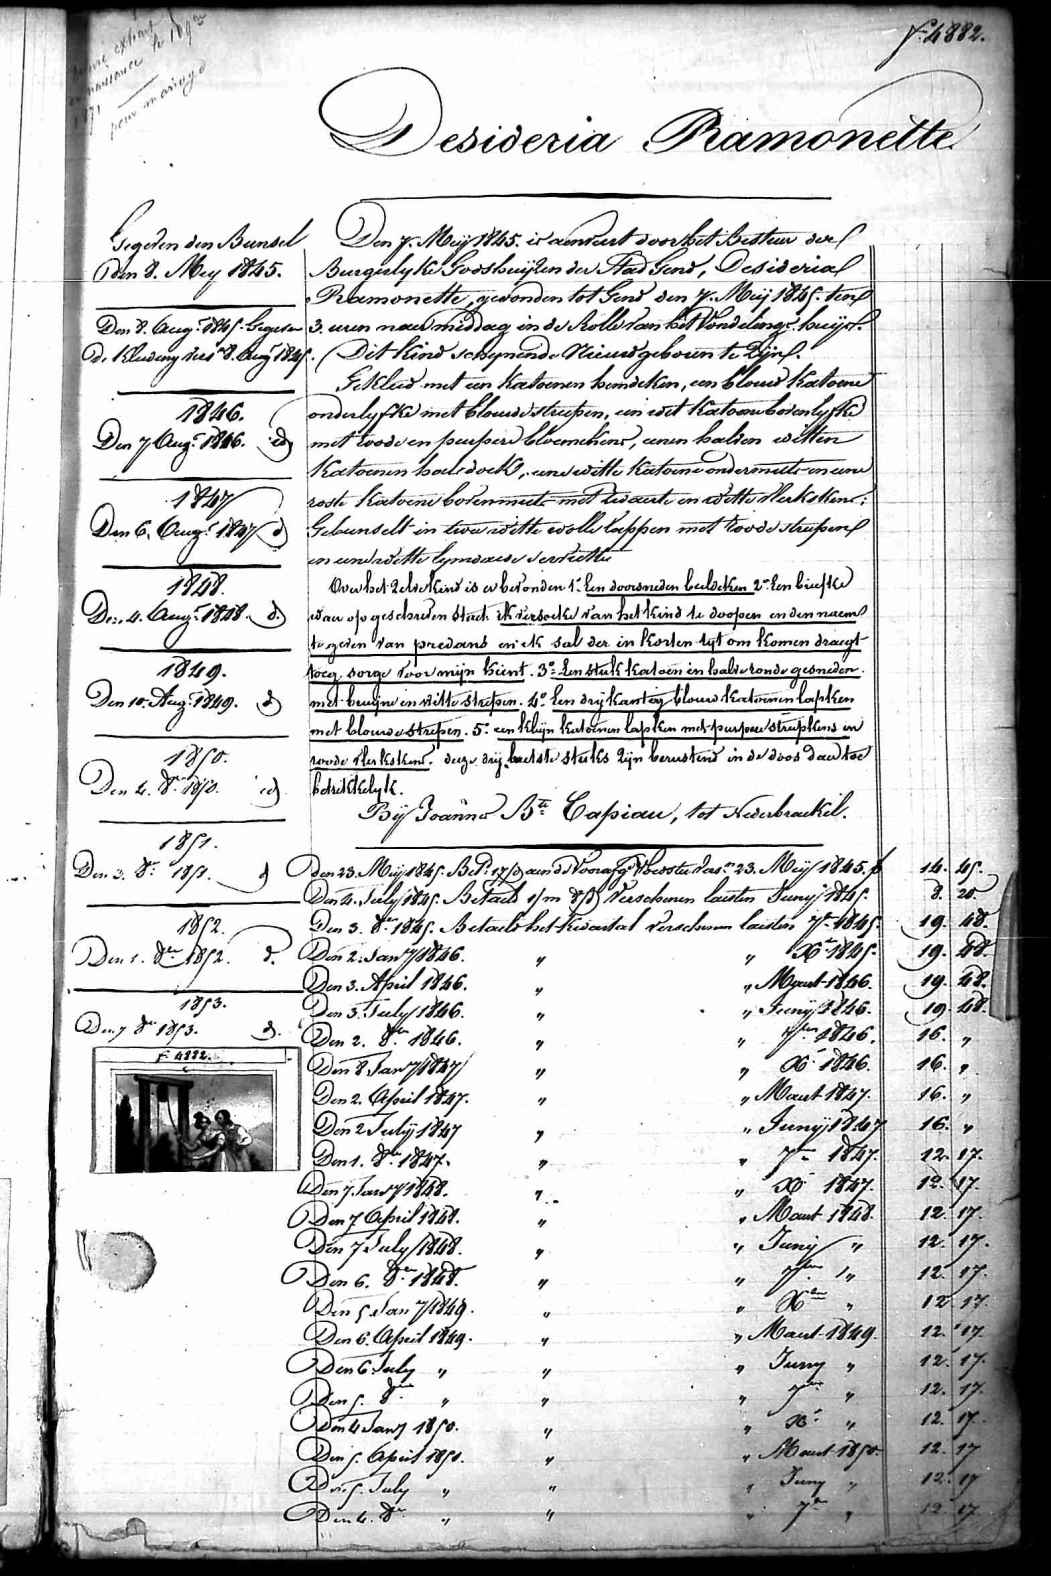 f. 4882.
pour mariage
Desideria Ramonette
Gegeven den Bunsel
den 8. Mey 1845.
Den 8. Augt. 1845. Gegeven
de Kleeding
1846.
Den 7 Augt. 1846. id
1847
Den 6. Augt. 1847 id
1848.
Den 4. Augt. 1848. id.
1849.
Den 10. Augt. 1849. id
1850.
Den 4. 8er 1850. id
1851.
Den 3. 8er 1851. id
1852.
Den 1. 8er 1852. id.
1853.
Den 7 8er 1853. id.
f. 4882.
Den 7. Meij 1845. is aenveert door het Bestuer der
Burgerlyke Godshuijzen der Stad Gend, Desideria
Ramonette, gevonden tot Gend den 7. Meij 1845. ten
3. uren naer middag in de Rolle van het Vondelingshuijs.
Dit kind schynende Nieuw geboren te Zijn.
Gekleed met een Katoenen hemdeken, een blauw Katoene
onderlyfke met blauwe streepen, een wit Katoen bovenlyfke
met roode en purpere bloemekens, eenen halven witten
Katoenen halsdoek, eene witte Katoene ondermuts en eene
roste Katoene bovenmuts met zwarte en witte Merkskens:
Gebunselt in twee witte wolle lappen met roode streepen
en eene witte lynwaede serviette
Over het Zelve kind is er bevonden 1° Een doorsneden beeldeken 2° Een briefke
waer op geschreven staet ik versoeke van het kind te doopen en den naem
te geven van predans en ik sal der in korten tyt om komen draegt
toeg sorge voor mijn kient. 3° Een stuk katoen in halve ronde gesneden
met bruijne en witte strepen. 4° Een drijkantig blauw katoenen lapken
met blauwe strepen. 5° een klijn katoenen lapken met purpere streepkens en
roode Merkskens. deze drij laetste stuks zijn berustend in de doos daer toe
betrekkelyk.
Bij Joanna Bta Capiau, tot Nederbrackel.
Den 23. Meij 1845. 23. Meij 1845. f 14. 45.
Den 4. July 1845. Betaeld Verschenen laesten Junij 1845. 8. 20
Den 3. 8er 1845. Betaeld het Kwartal Verschenen laesten 7er 1845. 19. 48.
Den 2. Jany 1846. " " Xr 1845. 19. 48.
Den 3. April 1846. " " Maert 1846. 19. 48.
Den 3. July 1846. " " Junij 1846. 19. 48.
Den 2. 8er 1846. " " 7ber 1846. 16. "
Den 8 Jany 1847 " " Xr 1846. 16. "
Den 2. April 1847. " " Maert 1847. 16. "
Den 2 Julij 1847 " " Junij 1847 16. "
Den 1. 8er 1847. " " 7er 1847. 12. 17.
Den 7. Jany 1848. " " Xr 1847. 12. 17.
Den 7 April 1848. " " Maert 1848. 12. 17.
Den 7 July 1848. " " Juny " 12. 17.
Den 6. 8er 1848. " " 7ber " 12. 17.
Den 5 Jany 1849. " " Xer " 12. 17.
Den 6. April 1849. " " Maert 1849. 12. 17.
Den 6 July " " " Juny " 12. 17.
Den 5. 8er " " " 7ber " 12. 17.
Den 4 Jany 1850. " " Xr " 12. 17.
Den 5. April 1850. " " Maert 1850. 12. 17
Den 5. July " " " Juny " 12. 17
Den 4. 8er " " " 7er " 12. 17.